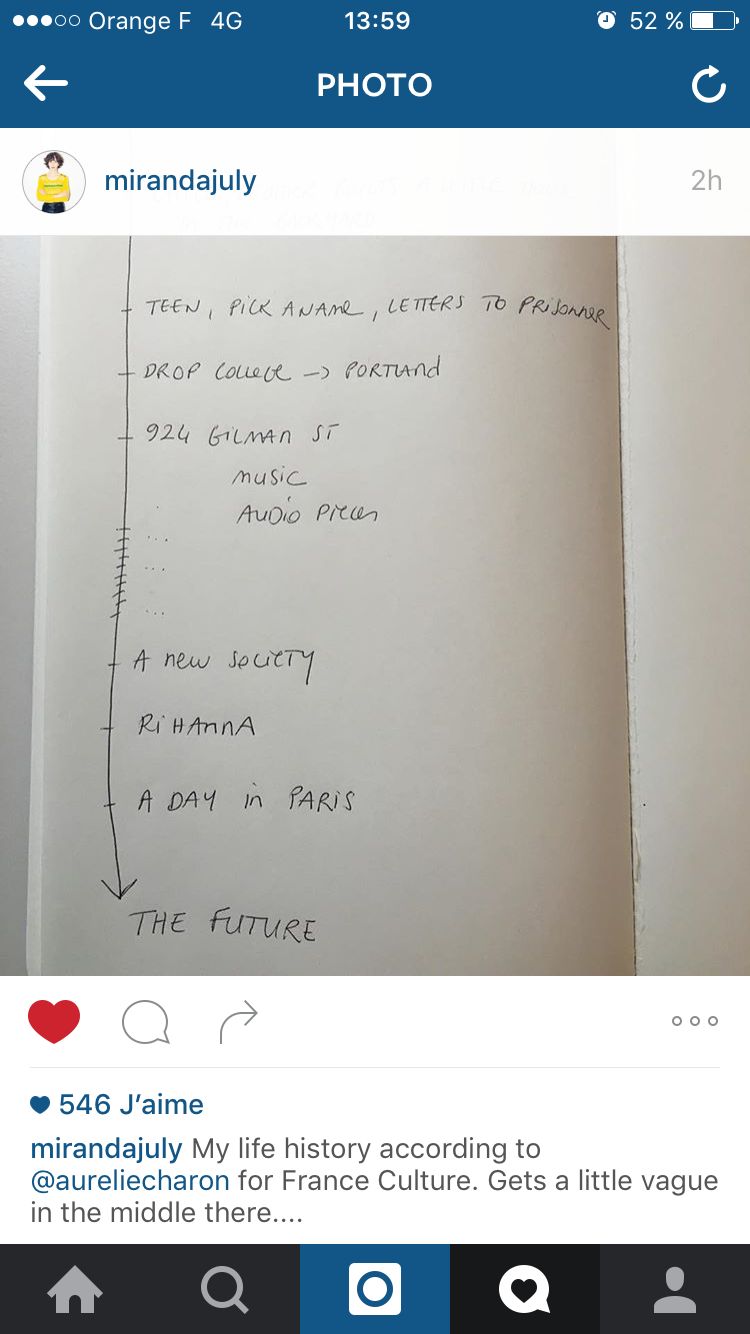 Orange F 4G 13:59 52 %
PHOTO
mirandajuly 2h
IN THE BACKYARD
TEEN, PICK A NAME, LETTERS TO PRISONNER
DROP COLLEGE -> PORTLAND
924 GILMAN ST
MUSIC
AUDIO PIECES
...
...
...
A NEW SOCIETY
RIHANNA
A DAY in PARIS
THE FUTURE
546 J’aime
mirandajuly My life history according to
@aureliecharon for France Culture. Gets a little vague
in the middle there....